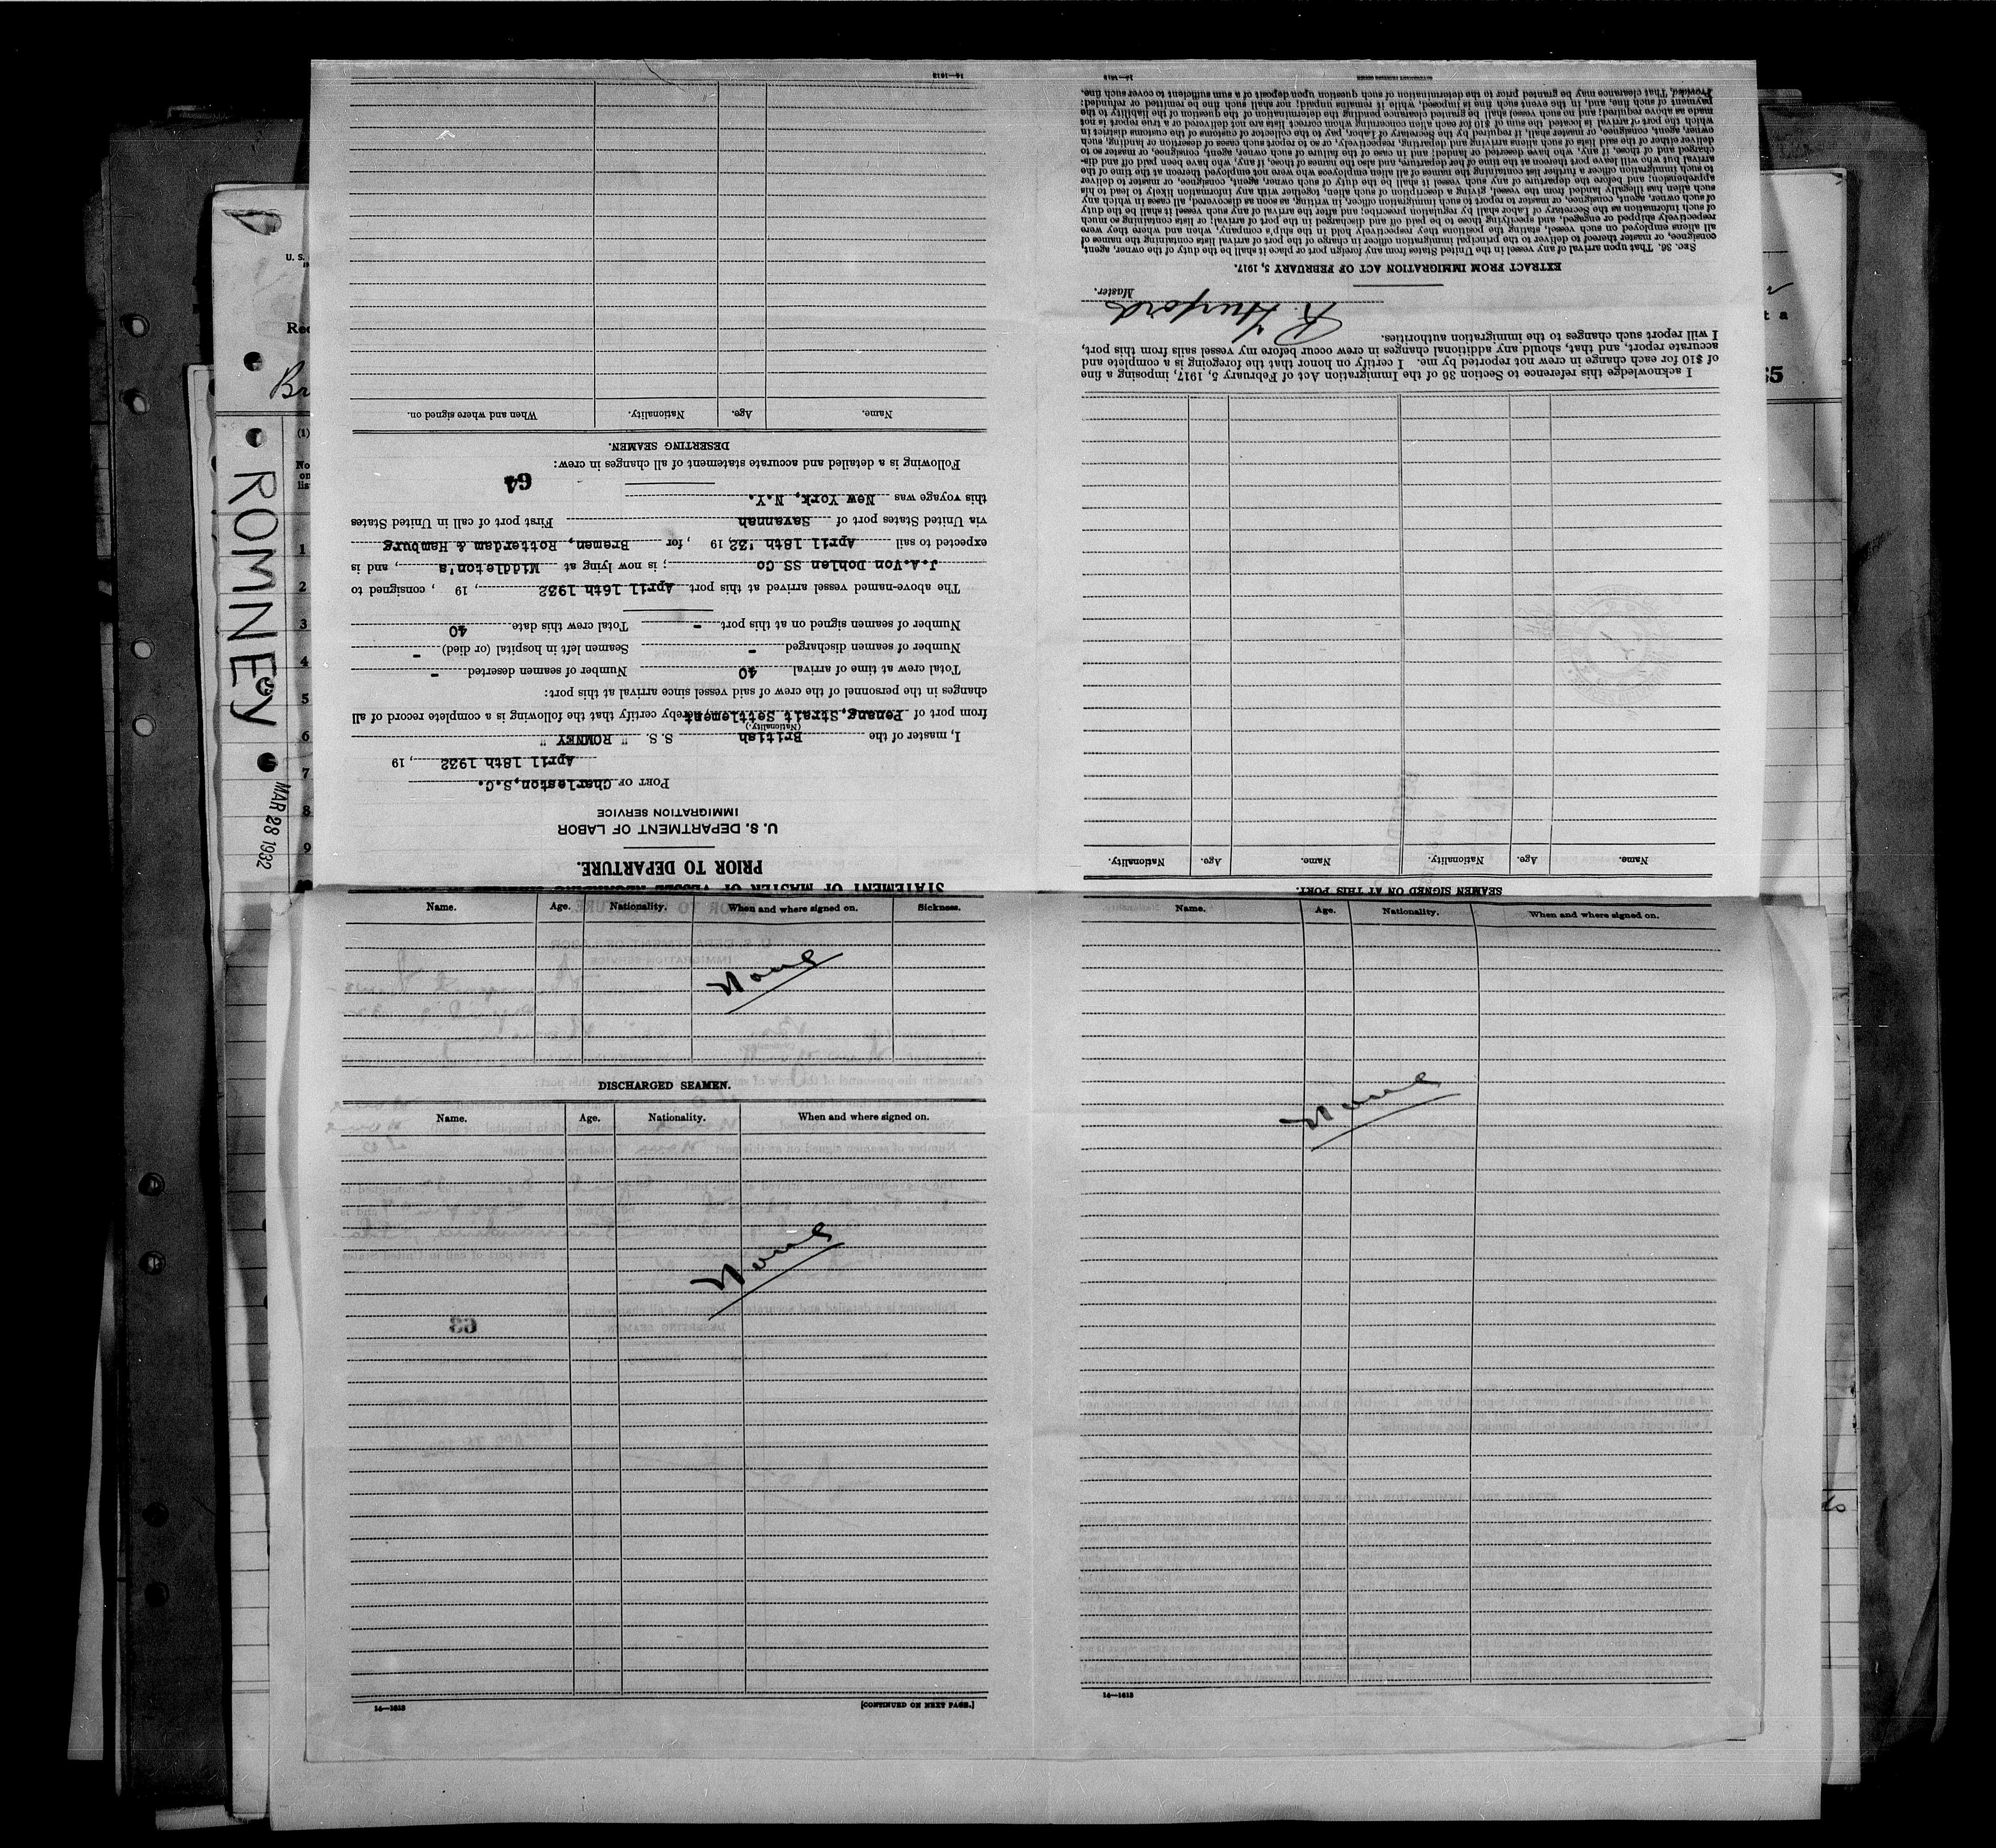 STATEMENT OF MASTER OF VESSEL REGARDING
PRIOR TO DEPARTURE.
U. S. DEPARTMENT OF LABOR
IMMIGRATION SERVICE
PORT OF Charleston,S.C.
April 18th 1932, 19
I, master of the British S. S. " ROMNEY "
(Nationality.)
from port of Penang,Strait Settlement, hereby certify that the following is a complete record of all
changes in the personnel of the crew of said vessel since arrival at this port:
Total crew at time of arrival 40 Number of seamen deserted -
Number of seamen discharged - Seamen left in hospital (or died) -
Number of seamen signed on at this port - Total crew this date 40
The above-named vessel arrived at this port April 16th 1932, 19 , consigned to
J.A.Von Dohlen SS Co ; is now lying at Middleton's , and is
expected to sail April 18th '32, 19 , for Bremen, Rotterdam & Hamburg
via United States port of Savannah First port of call in United States
this voyage was New York, N.Y.
64
Following is a detailed and accurate statement of all changes in crew:
DESERTING SEAMEN.
Name. Age. Nationality. When and where signed on.
14—1613
SEAMEN SIGNED ON AT THIS PORT.
Name. Age. Nationality. Name. Age. Nationality.
I acknowledge this reference to Section 36 of the Immigration Act of February 5, 1917, imposing a fine
of $10 for each change in crew not reported by me. I certify on honor that the foregoing is a complete and
accurate report, and that, should any additional changes in crew occur before my vessel sails from this port,
I will report such changes to the immigration authorities.
Master.
EXTRACT FROM IMMIGRATION ACT OF FEBRUARY 5, 1917.
SEC. 36. That upon arrival of any vessel in the United States from any foreign port or place it shall be the duty of the owner, agent,
consignee, or master thereof to deliver to the principal immigration officer in charge of the port of arrival lists containing the names of
all aliens employed on such vessel, stating the positions they respectively hold in the ship's company, when and where they were
respectively shipped or engaged, and specifying those to be paid off and discharged in the port of arrival; or lists containing so much
of such information as the Secretary of Labor shall by regulation prescribe; and after the arrival of any such vessel it shall be the duty
of such owner, agent, consignee, or master to report to such immigration officer, in writing, as soon as discovered, all cases in which any
such alien has illegally landed from the vessel, giving a description of such alien, together with any information likely to lead to his
apprehension; and before the departure of any such vessel it shall be the duty of such owner, agent, consignee, or master to deliver
to such immigration officer a further list containing the names of all alien employees who were not employed thereon at the time of the
arrival but who will leave port thereon at the time of her departure, and also the names of those, if any, who have been paid off and dis-
charged and of those, if any, who have deserted or landed; and in case of the failure of such owner, agent, consignee, or master so to
deliver either of the said lists of such aliens arriving and departing, respectively, or so to report such cases of desertion or landing, such
owner, agent, consignee, or master shall, if required by the Secretary of Labor, pay to the collector of customs of the customs district in
which the port of arrival is located the sum of $10 for each alien concerning whom correct lists are not delivered or a true report is not
made as above required; and no such vessel shall be granted clearance pending the determination of the question of the liability to the
payment of such fine, and, in the event such fine is imposed, while it remains unpaid; nor shall such fine be remitted or refunded:
Provided, That clearance may be granted prior to the determination of such question upon deposit of a sum sufficient to cover such fine.
14—1613
Name. Age. Nationality. When and where signed on. Sickness.
None
DISCHARGED SEAMEN.
Name. Age. Nationality. When and where signed on.
None
14—1613
[CONTINUED ON NEXT PAGE.]
Name. Age. Nationality. When and where signed on.
None
14—1613
ROMNEY
MAR 28 1932
U. S.
(1)
No
on
lis
1
2
3
4
5
6
7
8
9
63